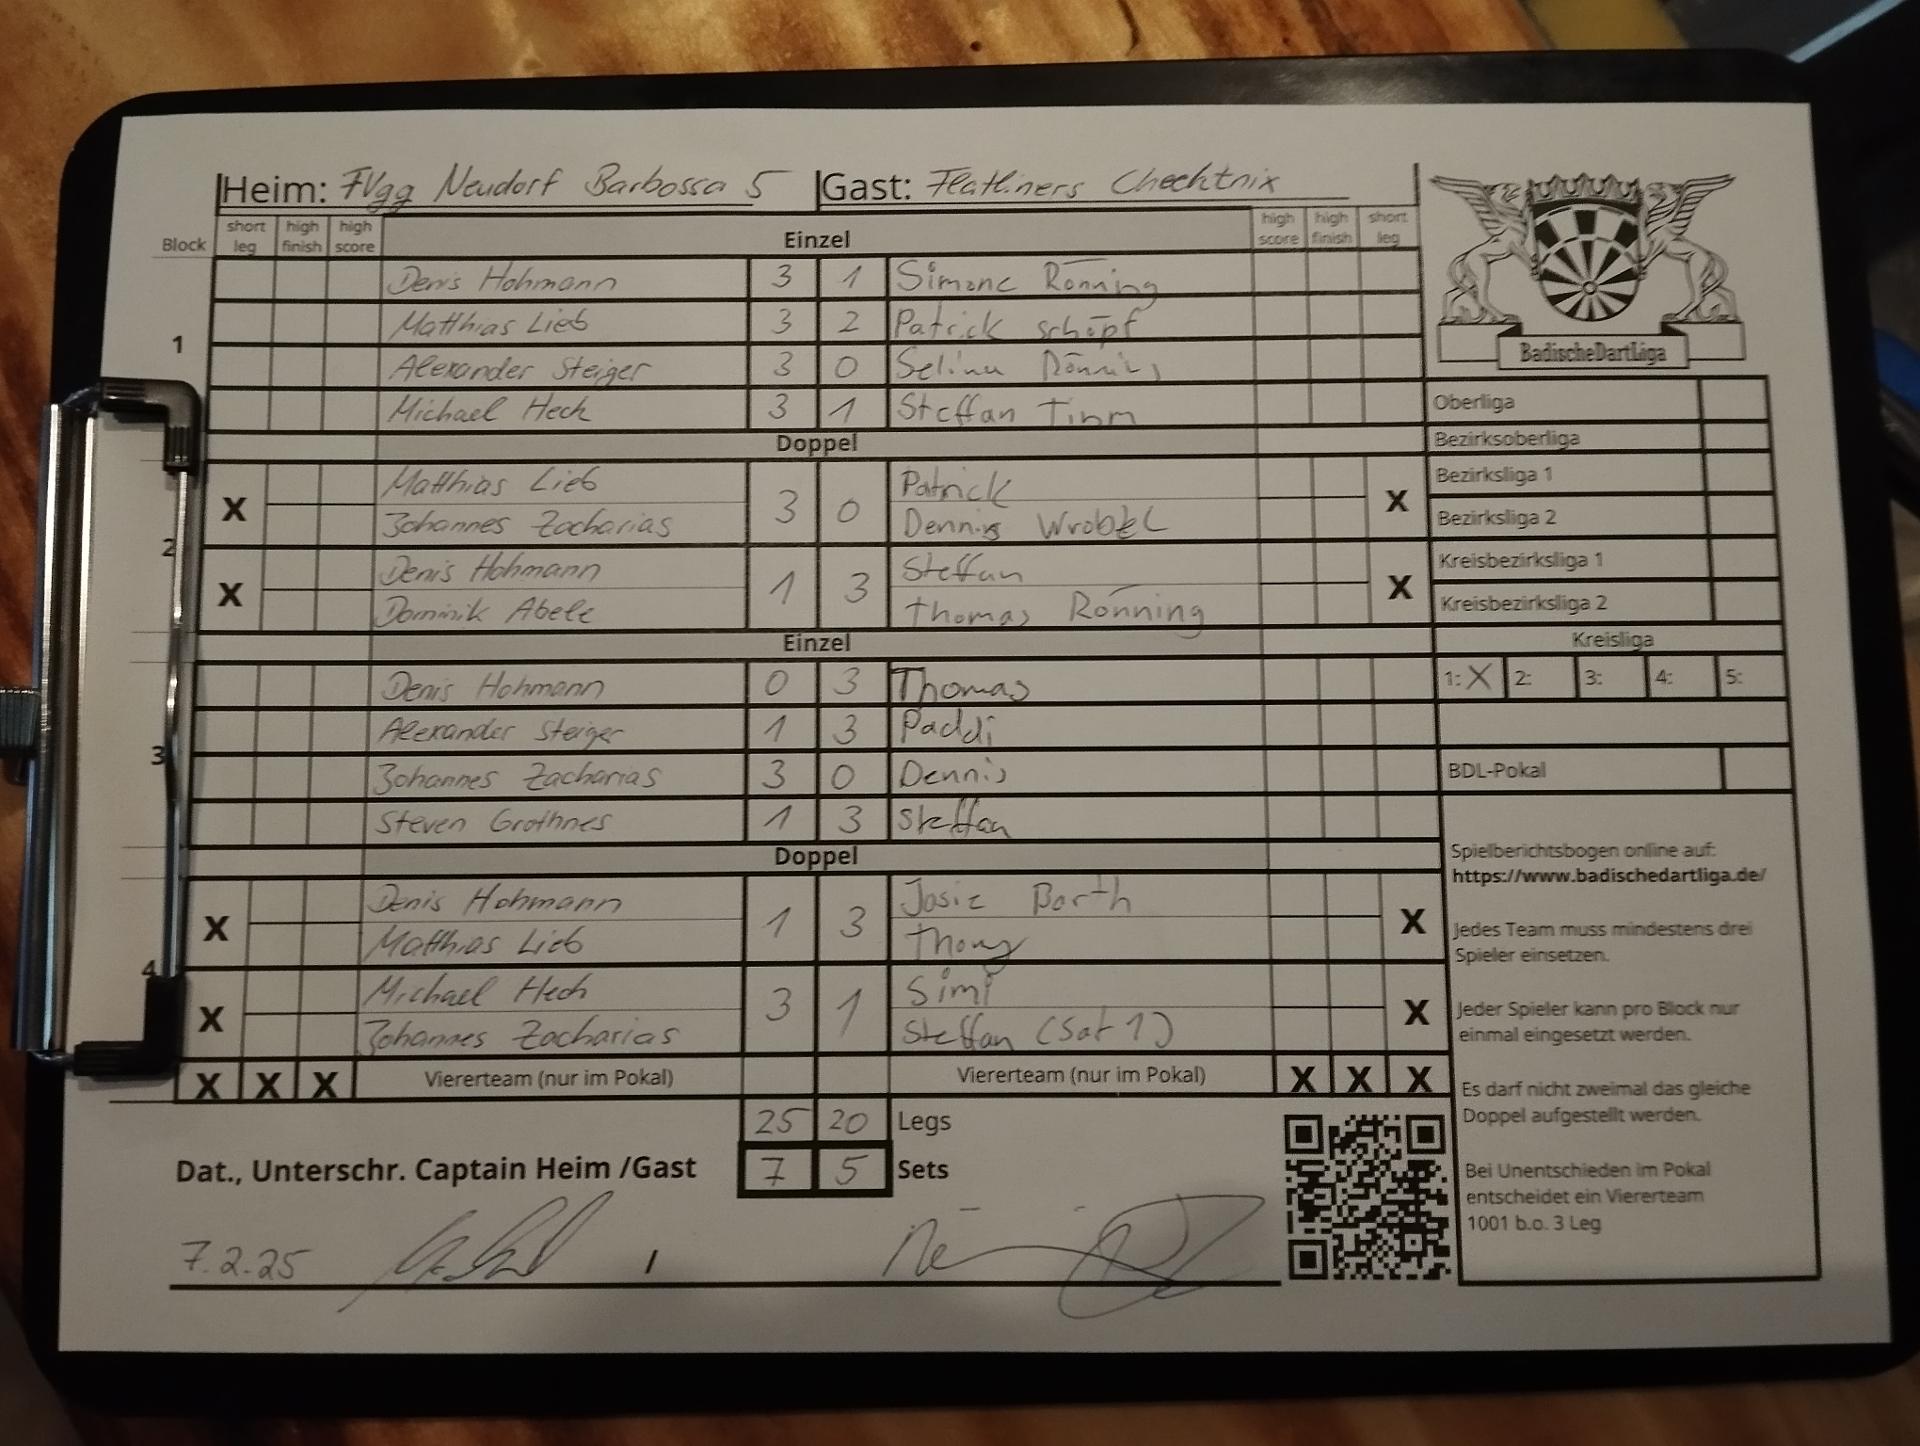 Heim: FVgg Neudorf Barbossa 5 Gast: Flatliners Checktnix
Block short leg high finish high score Einzel high score high finish short leg
BadischeDartLiga
1
Denis Hohmann 3 1 Simone Rönning
Matthias Lieb 3 2 Patrick schöpf
Alexander Steiger 3 0 Selina Rönning
Michael Heck 3 1 Steffan Timm
Doppel
2
Matthias Lieb Patrick
X 3 0 X
Johannes Zacharias Dennis Wrobel
Denis Hohmann Steffan
X 1 3 X
Dominik Abele Thomas Rönning
Einzel
3
Denis Hohmann 0 3 Thomas
Alexander Steiger 1 3 Paddi
Johannes Zacharias 3 0 Dennis
Steven Grothnes 1 3 Steffan
Doppel
4
Denis Hohmann Josie Barth
X 1 3 X
Matthias Lieb
Michael Heck Simi
X 3 1 X
Johannes Zacharias Steffan (Sat 1)
X X X Viererteam (nur im Pokal) Viererteam (nur im Pokal) X X X
25 20 Legs
Dat., Unterschr. Captain Heim /Gast 7 5 Sets
7.2.25 /
Oberliga
Bezirksoberliga
Bezirksliga 1
Bezirksliga 2
Kreisbezirksliga 1
Kreisbezirksliga 2
Kreisliga
1: X 2: 3: 4: 5:
BDL-Pokal
Spielberichtsbogen online auf:
https://www.badischedartliga.de/
Jedes Team muss mindestens drei
Spieler einsetzen.
Jeder Spieler kann pro Block nur
einmal eingesetzt werden.
Es darf nicht zweimal das gleiche
Doppel aufgestellt werden.
Bei Unentschieden im Pokal
entscheidet ein Viererteam
1001 b.o. 3 Leg